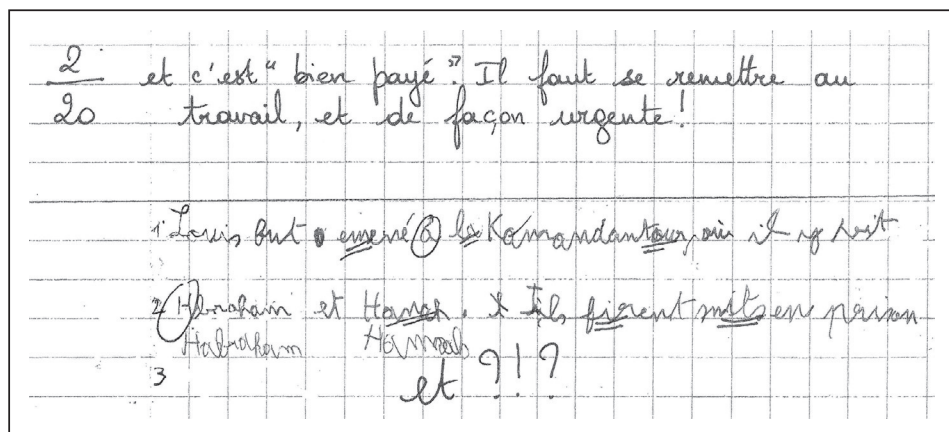 2/20 et c'est "bien payé". Il faut se remettre au
travail, et de façon urgente!
1. Louis fut emené a la Komandantour, où il y vit
2 Habraham et Hanah. Ils firent mits en prison
Habraham Hannah
3 et ?!?